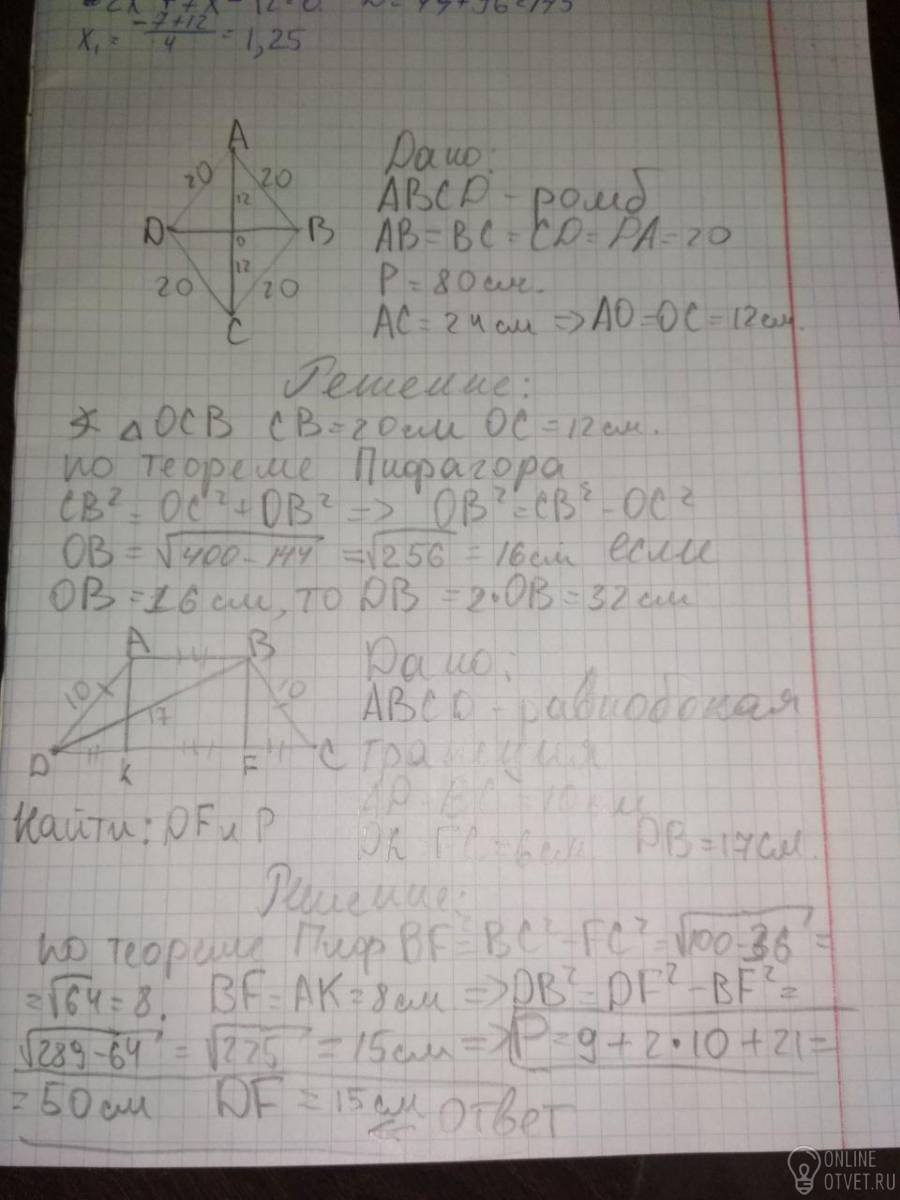 x₁ = (-7+12)/4 = 1,25
A
20 20
12
D O B
12
20 20
C
Дано:
ABCD - ромб
AB = BC = CD = DA = 20
P = 80 см.
AC = 24 см => AO = OC = 12 см.
Решение:
△ OCB CB = 20 см OC = 12 см.
по теореме Пифагора
CB² = OC² + OB² => OB² = CB² - OC²
OB = √400-144 = √256 = 16 см если
OB = 16 см, то DB = 2·OB = 32 см
A B
10 17 10
D K F C
Дано:
ABCD - равнобокая
трапеция
BC = 10 см
FC = 6 см DB = 17 см.
Найти: DF и P
Решение:
по теореме Пиф BF² = BC² - FC² = √100-36 =
= √64 = 8. BF = AK = 8 см => DB² = DF² - BF² =
√289-64 = √225 = 15 см => P = 9 + 2·10 + 21 =
= 50 см DF = 15 см ответ
ONLINE
OTVET.RU